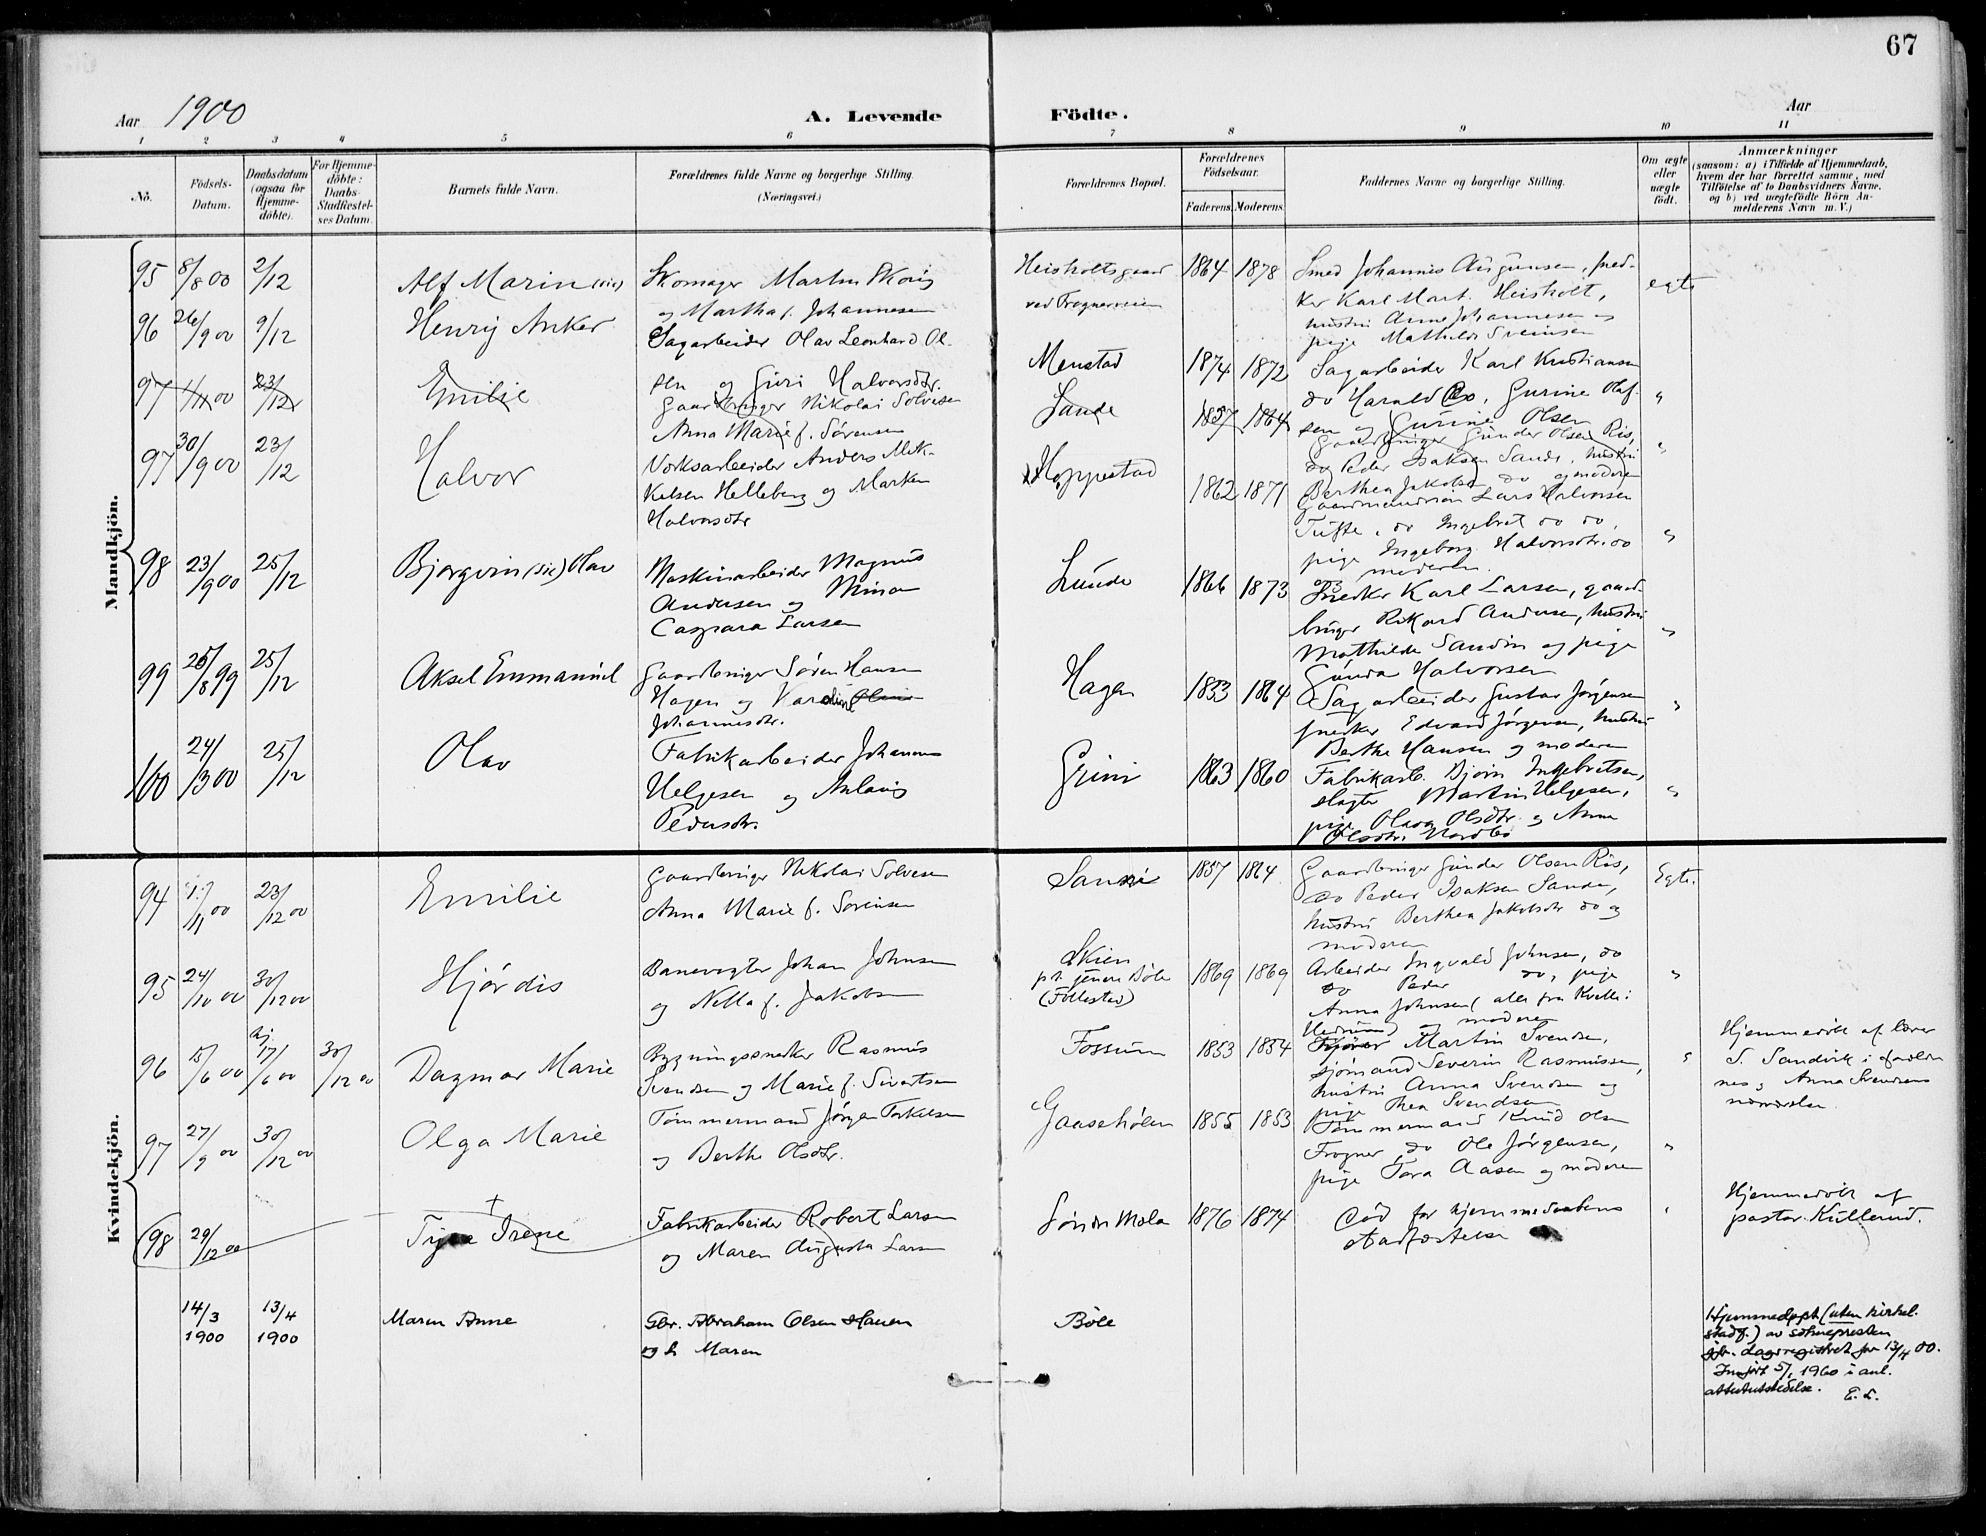 67
Aar 1900
A. Levende Födte.
Aar
1 2 3 4 5 6 7 8 9 10 11
No.
Födsels-Datum.
Daabsdatum (ogsaa for Hjemmedöbte).
For Hjemmedöbte: Daabs-Stadfæstelses Datum.
Barnets fulde Navn.
Forældrenes fulde Navne og borgerlige Stilling. (Næringsvei.)
Forældrenes Bopæl.
Forældrenes Födselsaar.
Faderens. Moderens.
Faddernes Navne og borgerlige Stilling.
Om ægte eller uægte födt.
Anmærkninger (saasom: a) i Tilfælde af Hjemmedaab, hvem der har forrettet samme, med Tilföielse af to Daabsvidners Navne, og b) ved uægtefödte Börn Anmelderens Navn m. V.)
Mandkjön.
95 8/8 00 2/12 Alf Marin (sic)
Skomager Martin Skorig
og Martha f. Johannesen
Heisholtsgaard
ved Frognerveien
1864 1878
Smed Johannes Ausgunsen, snedker
Karl Mart. Heisholt,
hustru Anne Johannesen og
pige Mathilde Svensen
egte
96 26/9 00 9/12 Henry Anker
Sagarbeider Olav Leonhard Olsen
og Guri Halvorsdtr.
Menstad 1874 1872
Sagarbeider Karl Kristiansen
do Harald do, Gurine Olafsen
og Gurine Olsen
"
97 1/11 00 23/12 Emilie
Gaardbruger Nikolai Solvesen
Anna Marie f. Sørensen
Sande 1857 1864
Gaardbruger Gunder Olsen Riis,
do Peder Isaksen Sande, hustru
Berthea Jakobsdtr do og moderen
"
97 30/9 00 23/12 Halvor
Verksarbeider Anders Mikkelsen
Helleberg og Maren
Halvorsdtr
Hoppestad 1862 1871
Gaardmandssøn Lars Halvorsen
Tufte, do Ingebret do do,
pige Ingeborg Halvorsdtr. do
moderen.
"
98 23/9 00 25/12 Bjorgvin (sic) Olav
Maskinarbeider Magnus
Andersen og Mina
Caspara Larsen
Lunde 1866 1873
Snedker Karl Larsen, gaardbruger
Rikard Andersen, hustru
Mathilde Sandin og pige
Gunda Halvorsen
"
99 26/8 99 25/12 Aksel Emmanuel
Gaardbruger Søren Hansen
Hagen og Karoline
Johannesdtr.
Hagen 1833 1864
Sagarbeider Gustav Jørgensen
snedker Edvard Jørgensen, hustru
Berthe Hansen og moderen
"
100 24/3 00 25/12 Olav
Fabrikarbeider Johannes
Helgesen og Anlaug
Pedersdtr.
Grini 1863 1860
Fabrikarb. Bjørn Ingebretsen,
slagter Martin Helgesen,
pige Olava Olsdtr. og Anne
Olsdtr. Nordbö
"
Kvindekjön.
94 1/11 00 23/12 00 Emilie
Gaardbruger Nikolai Solvesen
Anna Marie f. Sørensen
Sande 1857 1864
Gaardbruger Gunder Olsen Riis,
do Peder Isaksen Sande,
hustru Berthea Jakobsdtr do og
moderen
Egte.
95 24/10 00 30/12 00 Hjørdis
Banevogter Johan Johnsen
og Nella f. Jakobsen
Skien
p.t. Bøle
(Follestad)
1869 1869
Arbeider Ingvald Johnsen, do
do Peder do, pige
Anna Johnsen (alle fra Kvelle i
Hedrum) og moderen
"
96 15/6 00 hj. 17/6 00 30/12 00 Dagmar Marie
Bygningssnedker Rasmus
Svendsen og Marie f. Sivertsen
Fossum 1853 1854
Martin Svendsen,
sjømand Severin Rasmussen,
hustru Anna Svendsen og
pige Thea Svendsen
"
Hjemmedøbt af lærer
S. Sandvik i
og Anna Svendsens
nærværelse.
97 27/9 00 30/12 00 Olga Marie
Tømmermand Jørgen Torkelsen
og Berthe Olsdtr.
Gaaseholen 1855 1853
Tømmermand Knud Olsen
Frogner, do Ole Jørgensen,
pige Tora Aasen og moderen
"
98 29/12 00 Irene
Fabrikarbeider Robert Larsen
og Maren Augusta Larsen
Søndre Mæla 1876 1874
Død før hjemmedaabens
stadfæstelse
Hjemmedøbt af
pastor Kullerud.
14/3 1900 13/4 1900 Maren Anne
Gbr. Abraham Olsen Hauen
og h. Maren
Bøle
Hjemmedøpt (uten kirkel.
stadf.) av soknepresten
iflr. dagsregistret for 13/4 00.
Innført 5/1 1960 i anl.
attestutstedelse. E. L.